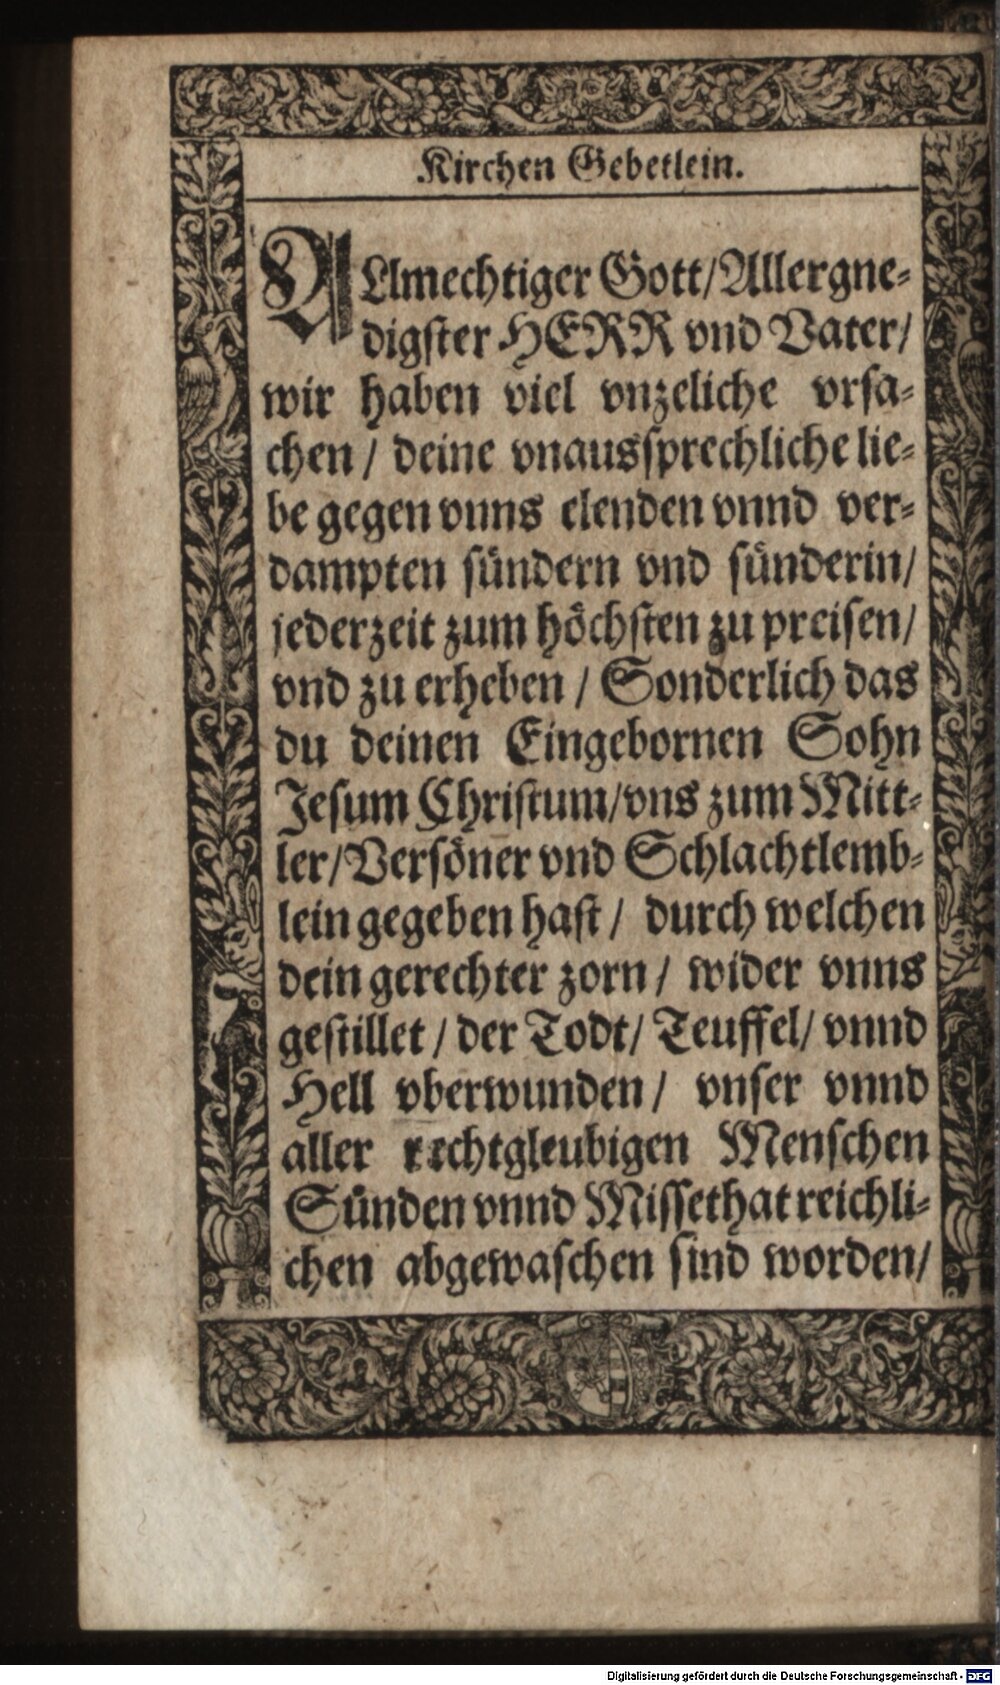 Kirchen Gebetlein.
ALlmechtiger Gott/Allergne-
digster HERR vnd Vater/
wir haben viel vnzeliche vrsa-
chen/ deine vnaussprechliche lie-
be gegen vnns elenden vnnd ver-
dampten sündern vnd sünderin/
jederzeit zum höchsten zu preisen/
vnd zu erheben/ Sonderlich das
du deinen Eingebornen Sohn
Jesum Christum/vns zum Mitt-
ler/Versöner vnd Schlachtlemb-
lein gegeben hast/ durch welchen
dein gerechter zorn/ wider vnns
gestillet/ der Todt/ Teuffel/ vnnd
Hell vberwunden/ vnser vnnd
aller rechtgleubigen Menschen
Sünden vnnd Missethat reichli-
chen abgewaschen sind worden/
Digitalisierung gefördert durch die Deutsche Forschungsgemeinschaft - DFG